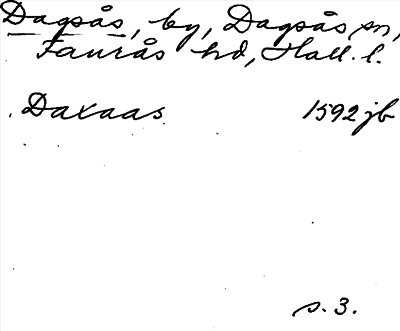 Dagsås, by, Dagsås sn,
Faurås hd, Hall. l.
Daxaas 1592 jb
s. 3.